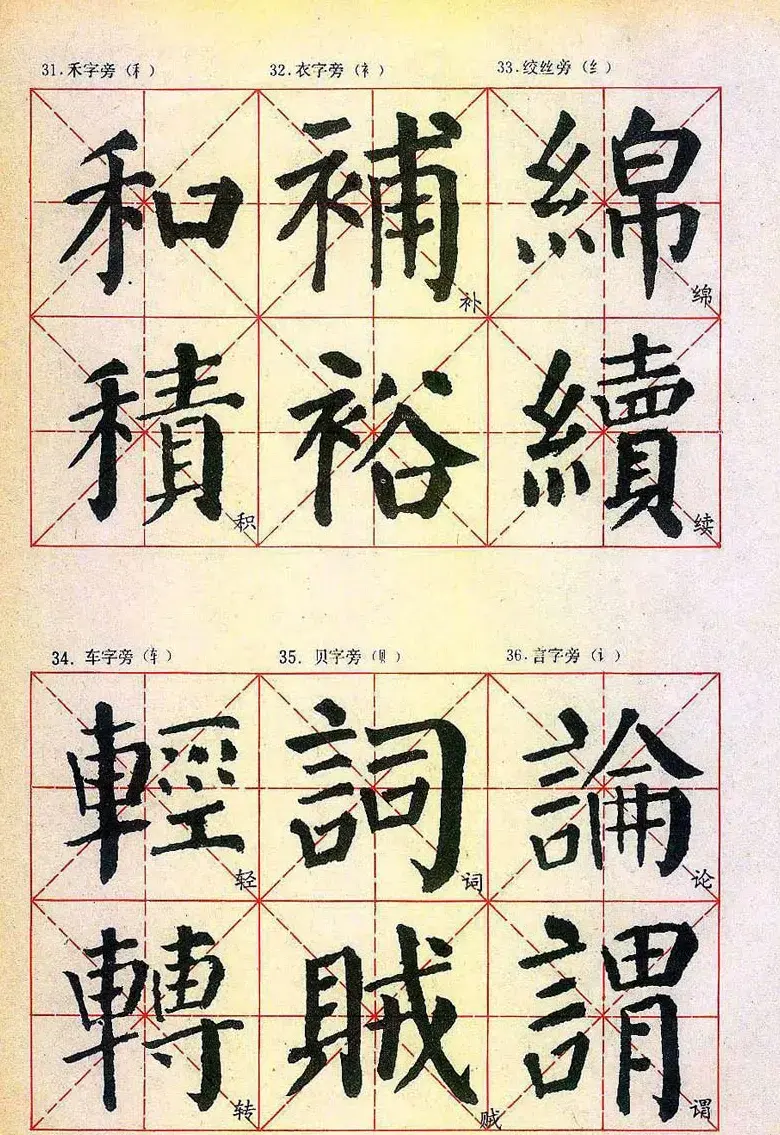 31.禾字旁（禾） 32.衣字旁（衤） 33.绞丝旁（纟）
和 補 綿
补 绵
積 裕 續
积 续
34. 车字旁（车） 35. 贝字旁（贝） 36.言字旁（讠）
輕 詞 論
轻 词 论
轉 賊 謂
转 贼 谓